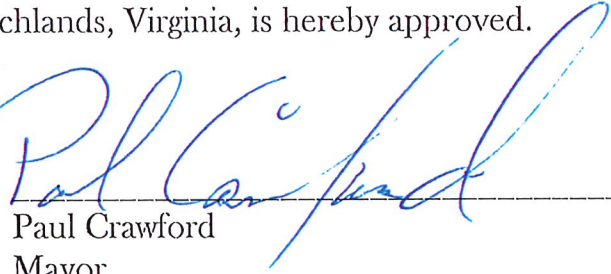 chlands, Virginia, is hereby approved.
Paul Crawford
Paul Crawford
Mayor